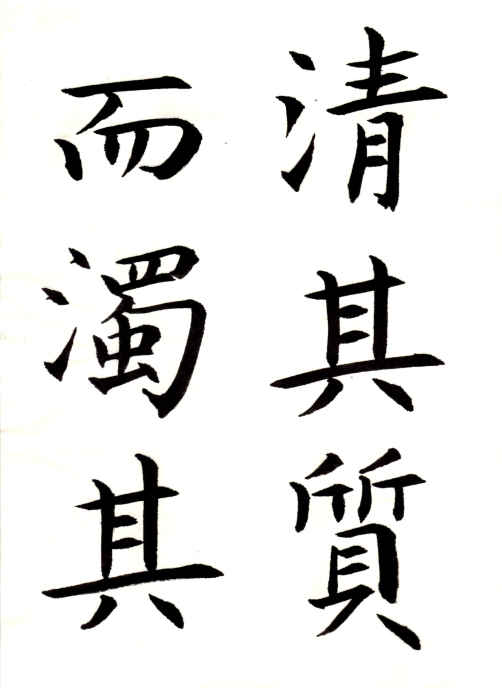 清其質
而濁其